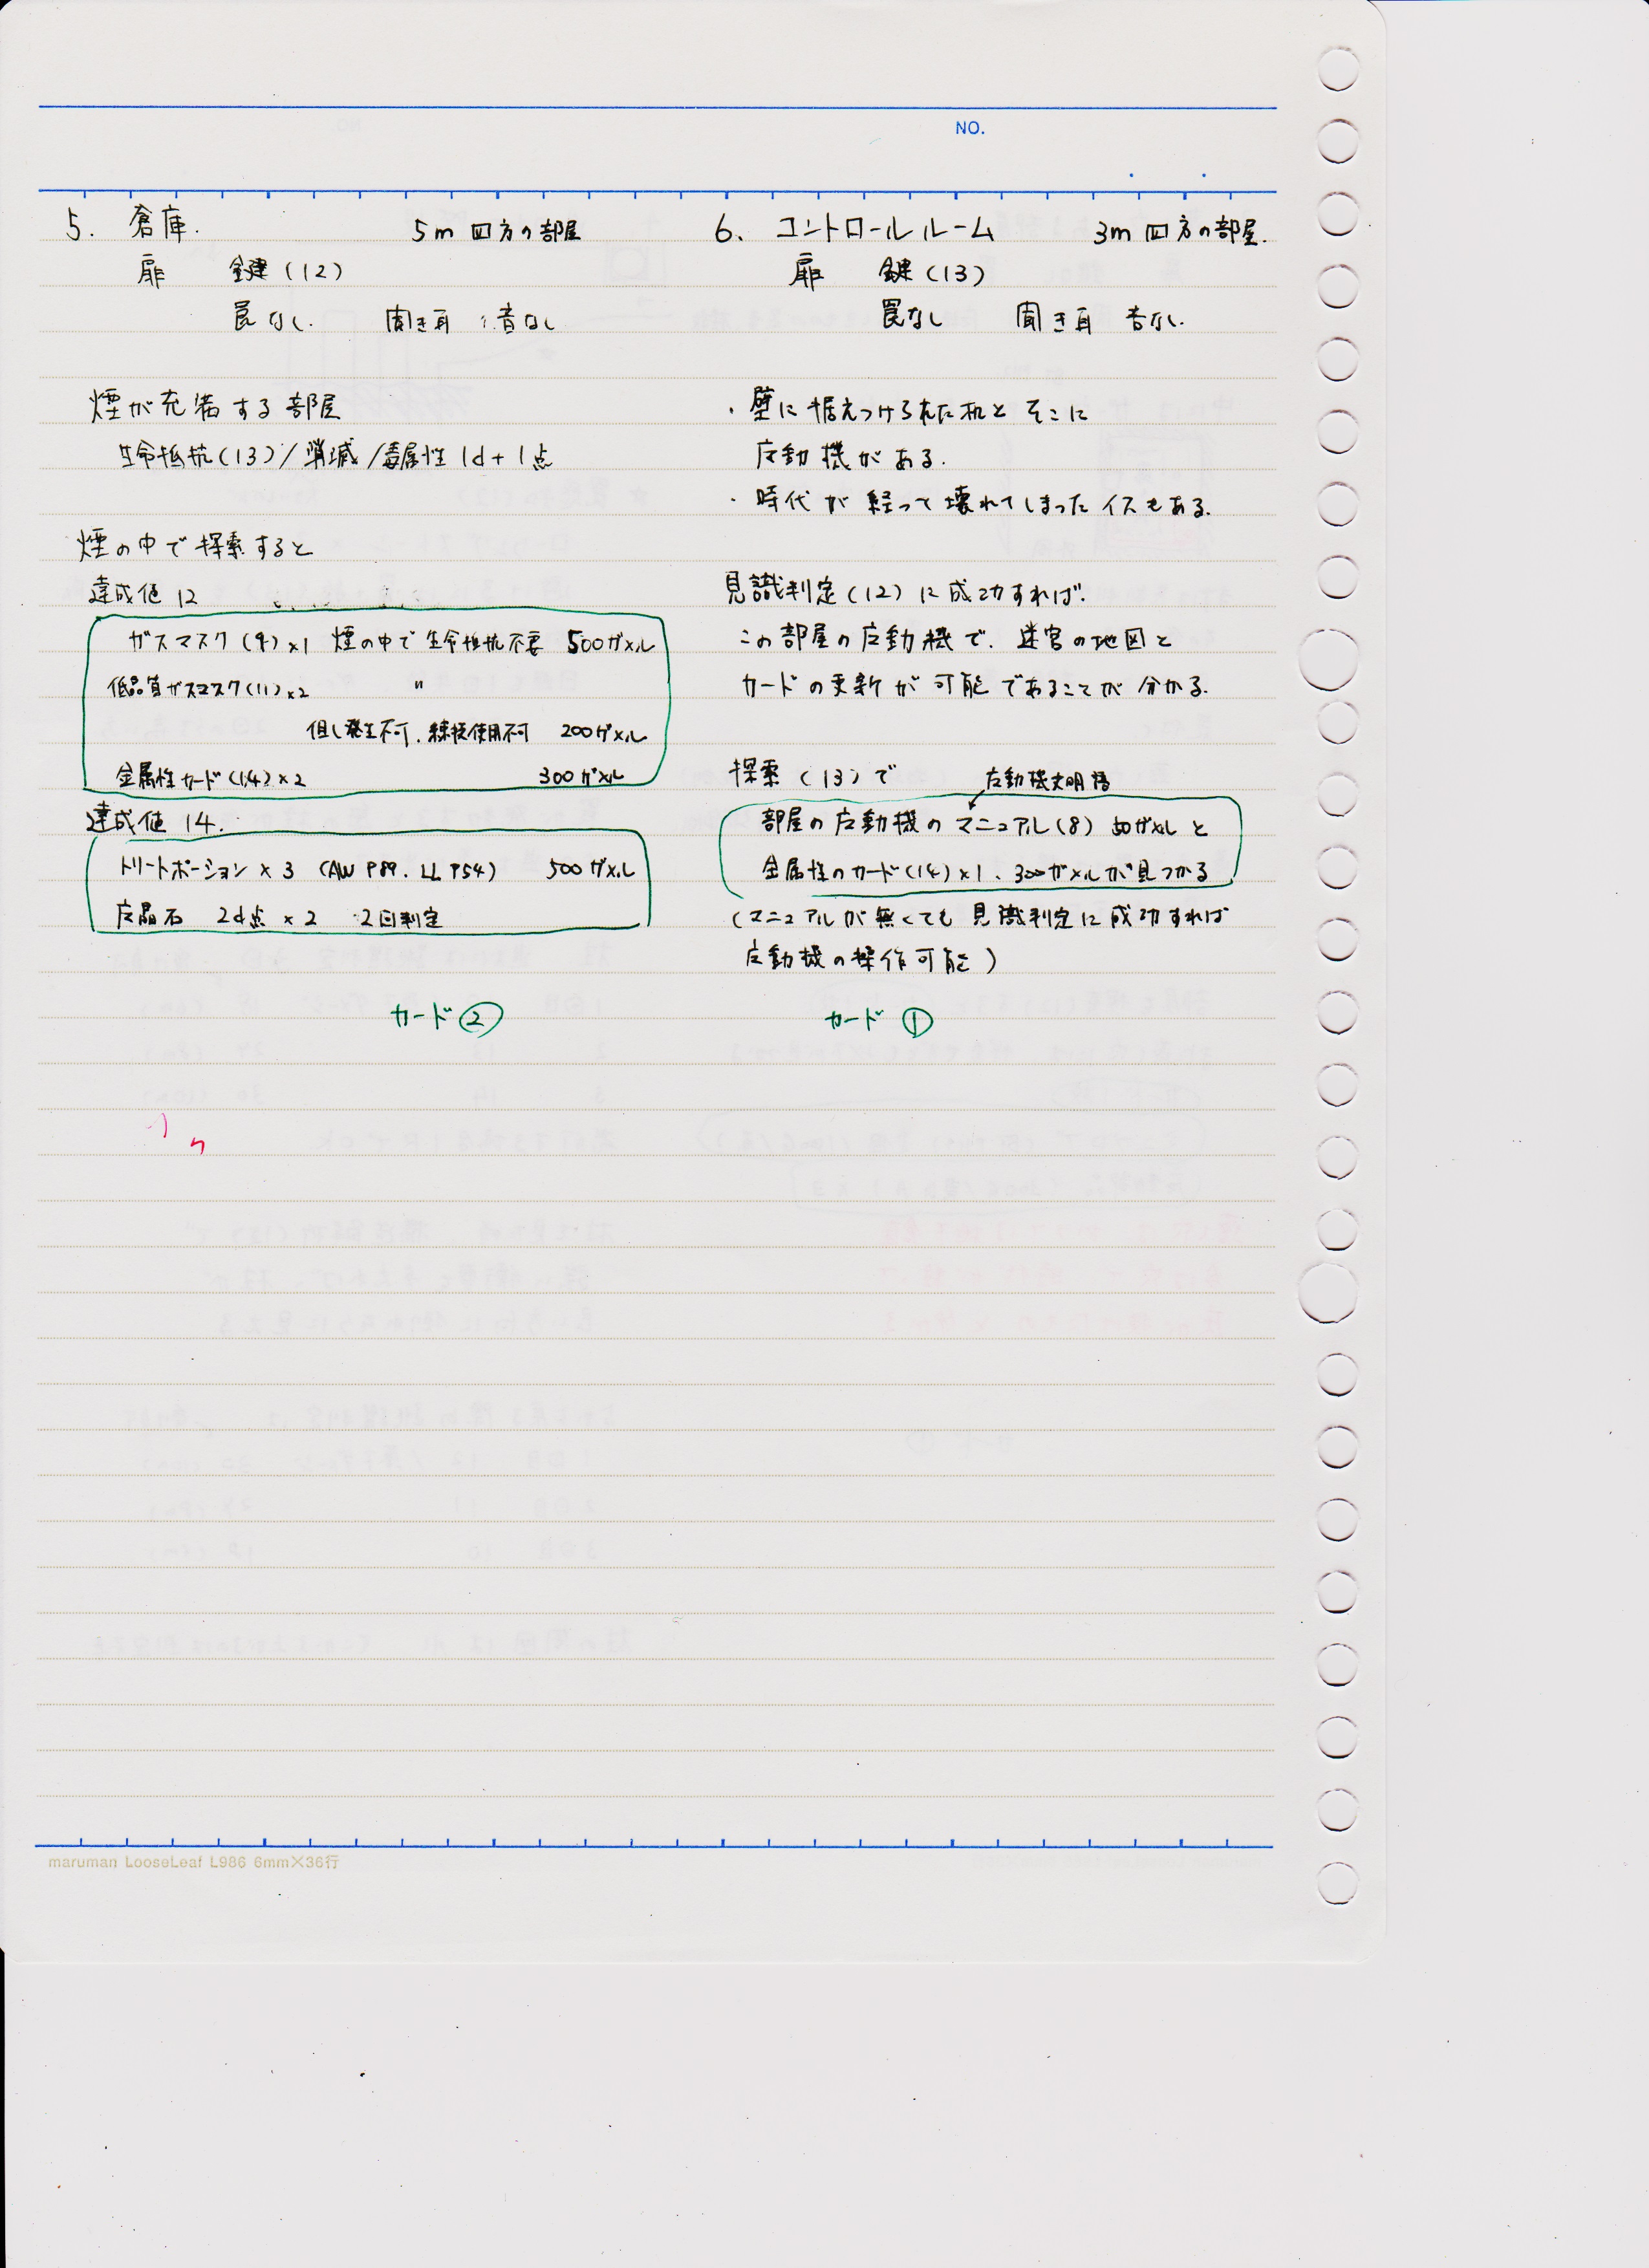 NO.
5. 倉庫. 5m 四方の部屋
扉 鍵(12)
罠なし. 聞き耳 音なし
煙が充満する部屋
生命抵抗(13)/消滅/毒属性 1d+1点
煙の中で探索すると
達成値 12
ガスマスク(9)×1 煙の中で生命抵抗不要 500ガメル
低品質ガスマスク(11)×2 〃
但し発生不可、練技使用不可 200ガメル
金属性カード(14)×2 300ガメル
達成値 14.
トリートポーション×3 (AW P89. LL P54) 500ガメル
広晶石 2d点×2 2回判定
カード②
6. コントロールルーム 3m 四方の部屋.
扉 鍵(13)
罠なし 聞き耳 音なし.
・壁に据えつけられた机とそこに
广動機がある.
・時代が経って壊れてしまったイスもある.
見識判定(12)に成功すれば.
この部屋の广動機で、迷宮の地図と
カードの更新が可能であることが分かる.
探索(13)で 广動機文明語
部屋の广動機のマニュアル(8) 50ガメルと
金属性のカード(14)×1、300ガメルが見つかる
(マニュアルが無くても見識判定に成功すれば
广動機の操作可能)
カード①
maruman LooseLeaf L986 6mm×36行